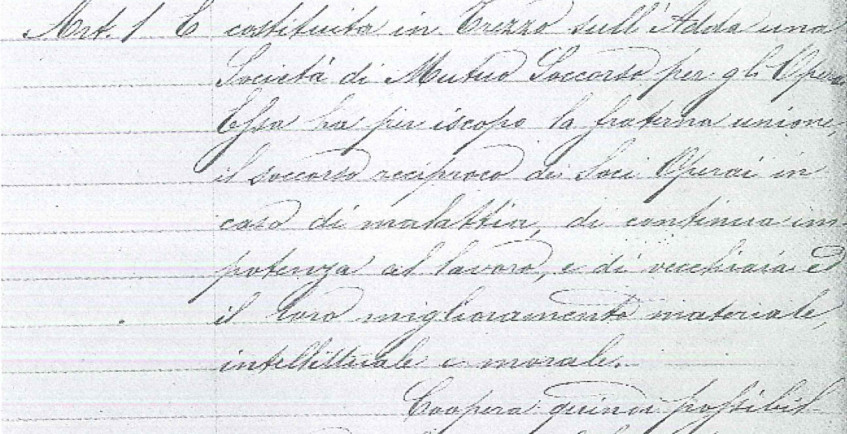 Art. 1 È costituita in Trezzo sull'Adda una
Società di Mutuo Soccorso per gli Opera
Essa ha per iscopo la fraterna unione,
il soccorso reciproco dei Soci Operai in
caso di malattia, di continua im-
potenza al lavoro, e di vecchiaia ed
il loro miglioramento materiale,
intellettuale e morale.
Coopera quindi possibil-